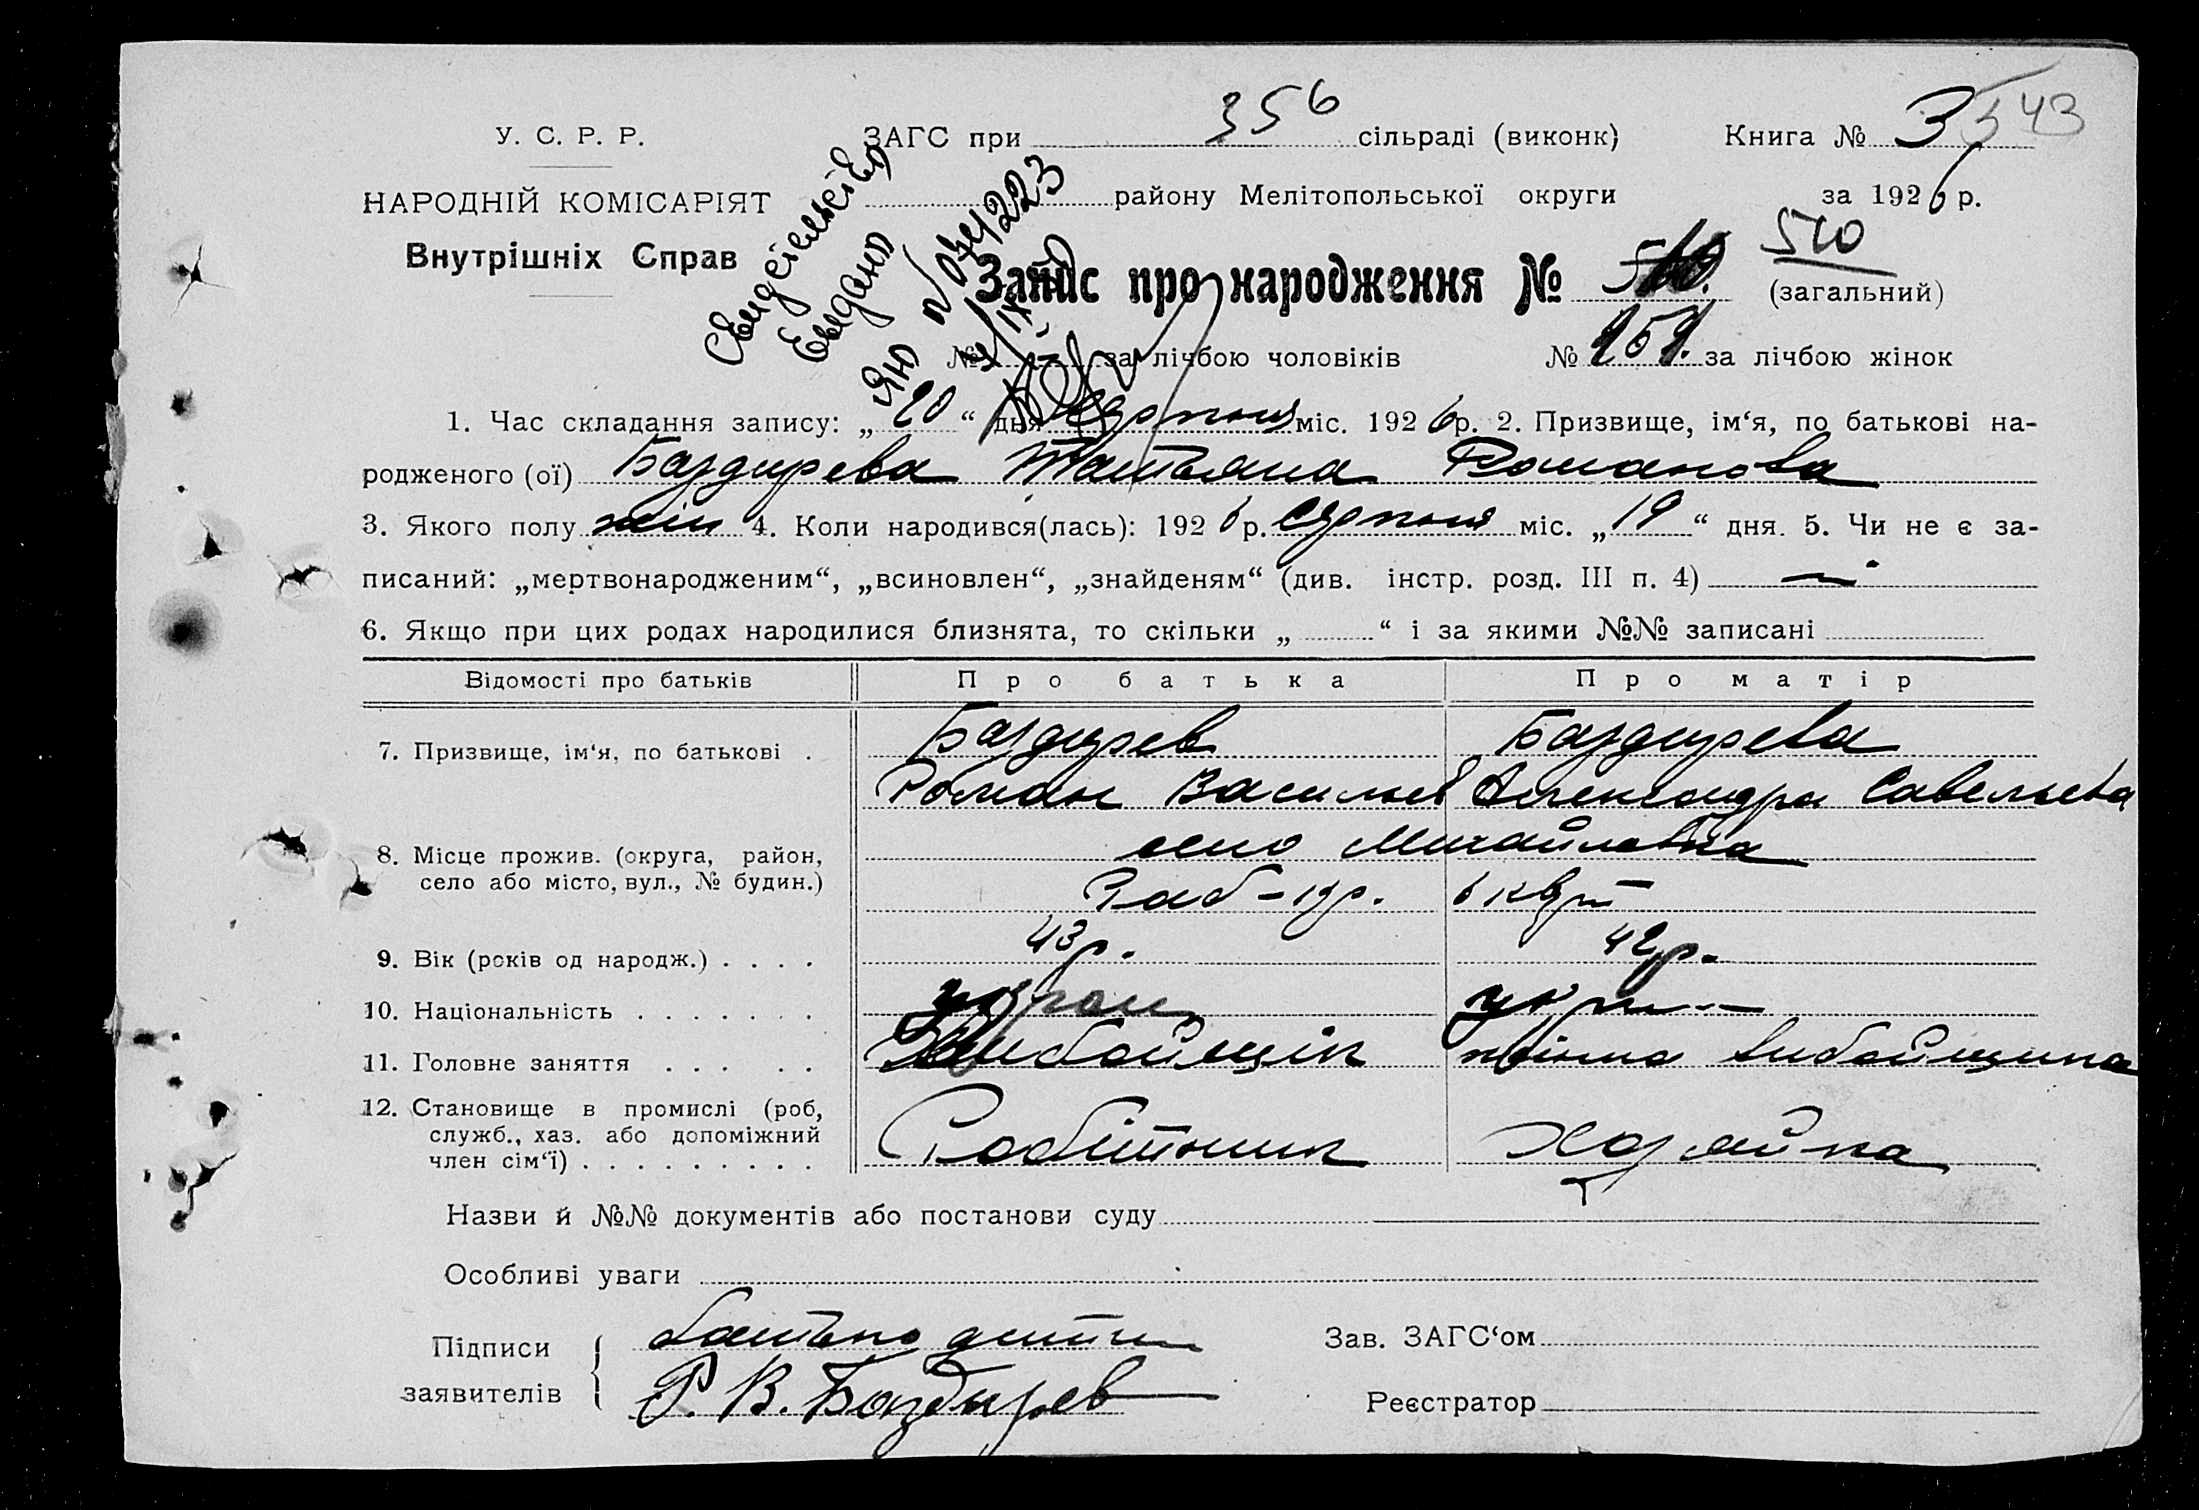 У. С. Р. Р.
НАРОДНІЙ КОМІСАРІЯТ
Внутрішніх Справ
ЗАГС при 356 сільраді (виконк)
району Мелітопольської округи
Книга № 3 543
за 1926 р.
Свидетельство
выдано
ЯЮ № 041223
Запис про народження № 510 (загальний)
№ за лічбою чоловіків № 259. за лічбою жінок
1. Час складання запису: „20“ дня серпня міс. 1926 р. 2. Призвище, ім‘я, по батькові на-
родженого (ої) Баздирева Татьяна Романова
3. Якого полу жін 4. Коли народився(лась): 1926 р. серпня міс. „19“ дня. 5. Чи не є за-
писаний: „мертвонародженим“, „всиновлен“, „знайденям“ (див. інстр. розд. III п. 4) —
6. Якщо при цих родах народилися близнята, то скільки „ “ і за якими №№ записані
Відомості про батьків Про батька Про матір
7. Призвище, ім‘я, по батькові . Баздирев Баздирева
Роман Васильев Александра Савельева
8. Місце прожив. (округа, район, село або місто, вул., № будин.) село Михайловка
9. Вік (років од народж.) . . . . 43 р. 42 р.
10. Національність . . . . . . . укран укр —
11. Головне заняття . . . . . Вибойщік жінка вибойщика
12. Становище в промислі (роб, служб., хаз. або допоміжний член сім‘ї) . . . . . . . . . Робітник Хазяйка
Назви й №№ документів або постанови суду
Особливі уваги
Підписи заявителів батько дитини
Р. В. Баздырев
Зав. ЗАГС‘ом
Реєстратор